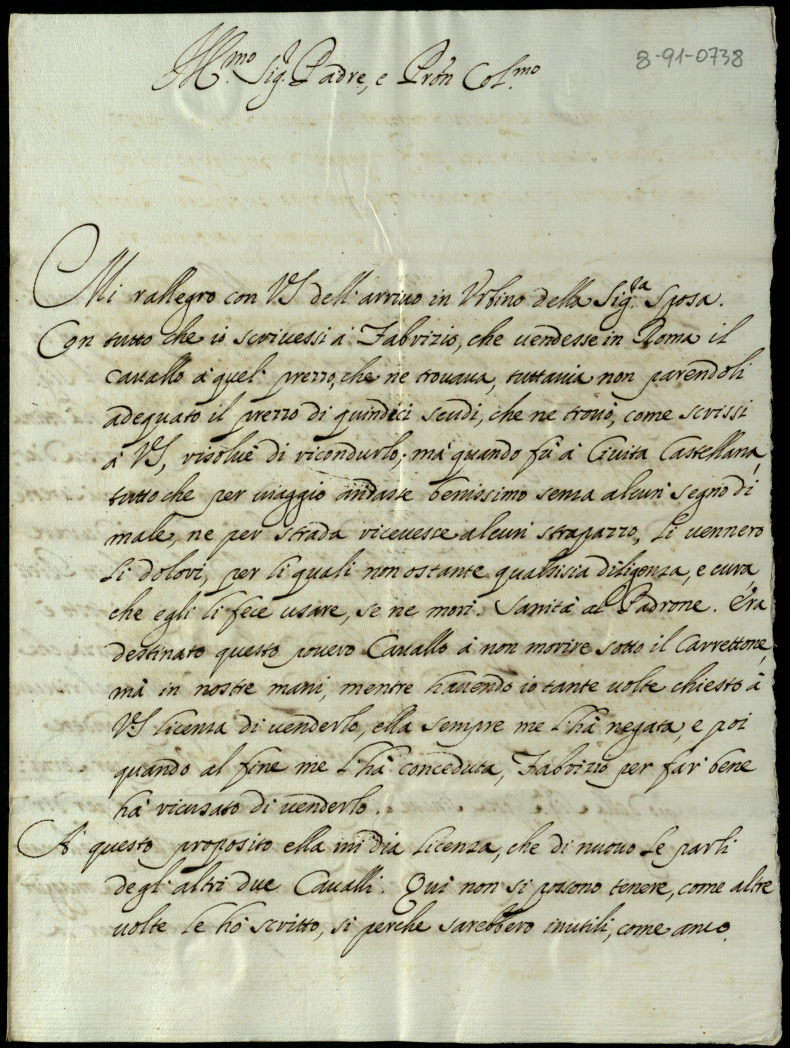 8-91-0738
Ill.mo Sig.r Padre, e Prōn Col.mo
Mi rallegro con VS dell'arriuo in Vrbino della Sig.ra Sposa.
Con tutto che io scriuessi à Fabrizio, che uendesse in Roma il
cauallo à quel prezzo, che ne trouaua, tuttauia non parendoli
adeguato il prezzo di quindeci scudi, che ne trouò, come scrissi
à VS, risoluè di ricondurlo; mà quando fù à Ciuita Castellana,
tutto che per uiaggio andasse benissimo senza alcun segno di
male, ne per strada riceuesse alcun strapazzo, li uennero
li dolori, per li quali non ostante qualsisia diligenza, e cura,
che egli li fece usare, se ne morì. Sanità al Padrone. Era
destinato questo pouero Cauallo à non morire sotto il Carrettone,
mà in nostre mani, mentre hauendo io tante uolte chiesto à
VS licenza di uenderlo, ella sempre me l'hà negata, e poi
quando al fine me l'hà conceduta, Fabrizio per far bene
hà ricusato di uenderlo.
A questo proposito ella mi dia licenza, che di nuouo le parli
degl'altri due Caualli. Qui non si possono tenere, come altre
uolte le hò scritto, si perche sarebbero inutili, come anco